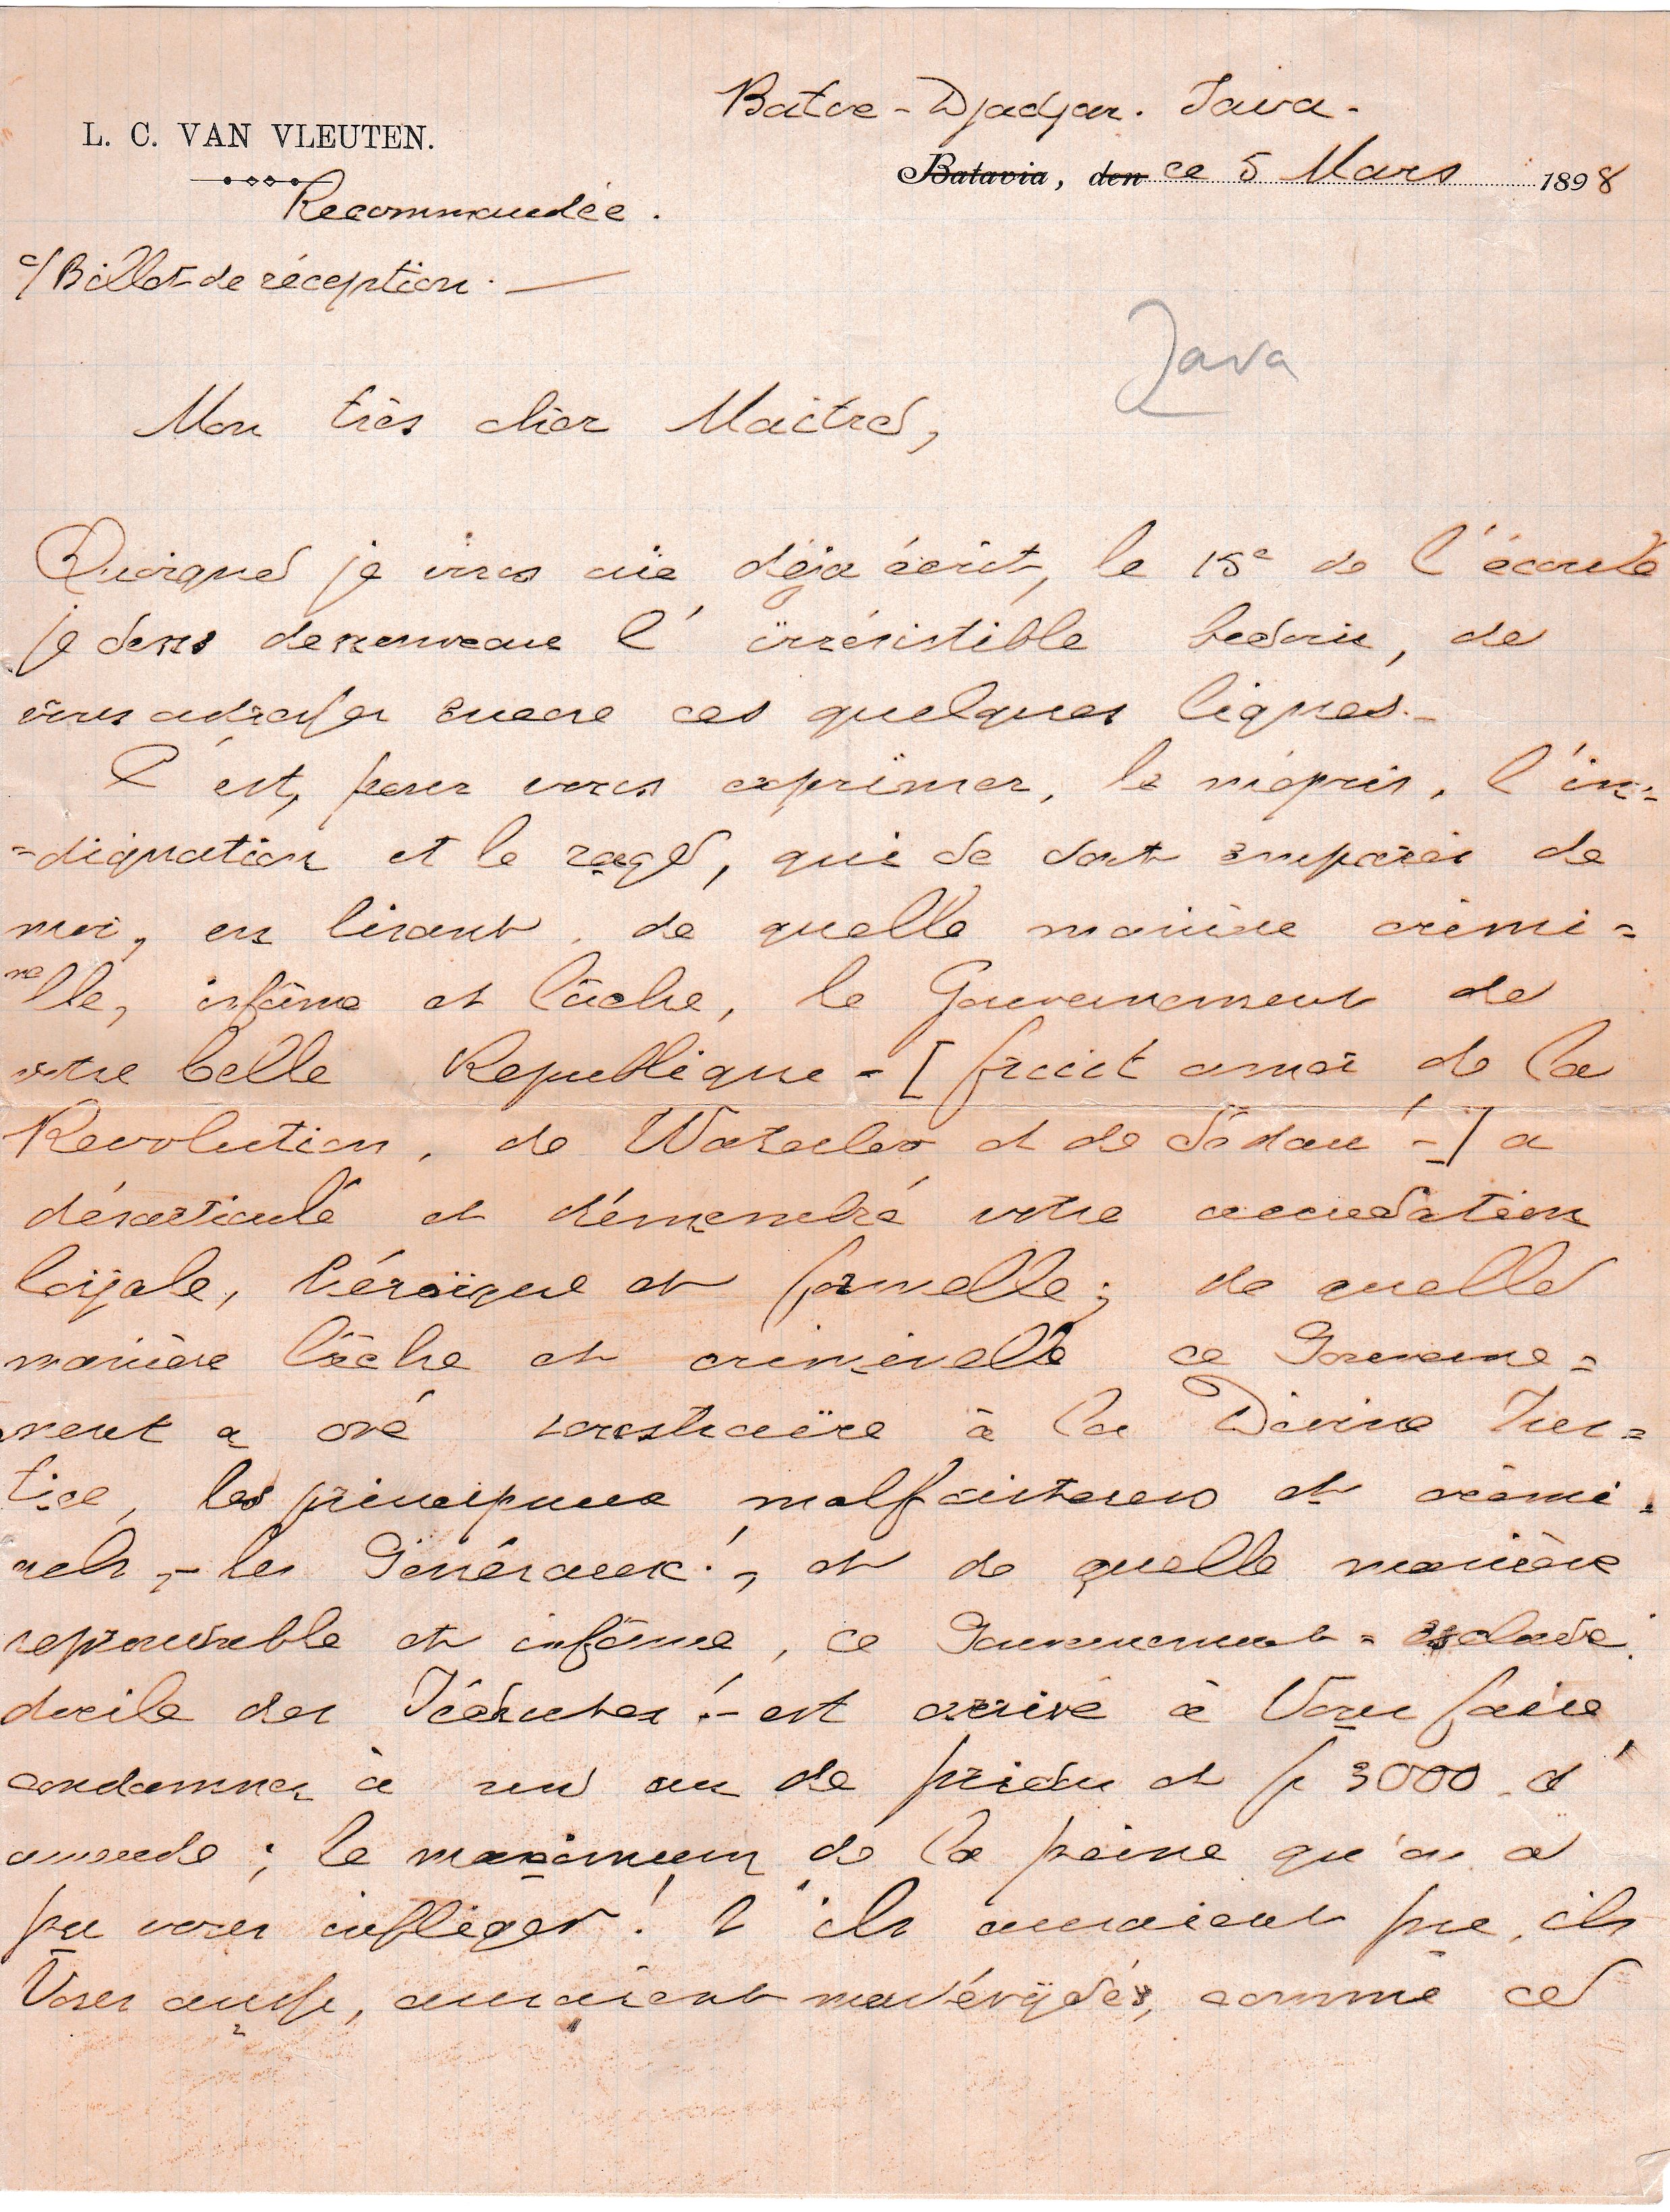 Batoe-Djadjar. Java.
L. C. VAN VLEUTEN.
Batavia, den ce 5 Mars 1898
Recommandée.
c/ Billet de réception.
Java
Mon très cher Maître,
Quoique je vous aie déja écrit, le 15e de l'écoulé
je sens denouveau l'irrésistible besoin, de
vous adresser encore ces quelques lignes.-
C'est, pour vous exprimer, le mépris, l'in-
=dignation et le rage, qui se sont emparés de
moi, en lisant, de quelle manière crimi=
nelle, infâme et lâche, le Gouvernement de
votre belle Republique - [fruit amer de la
Revolution, de Waterloo et de Sédan! -] a
désarticulé et démembré votre accusation
loÿale, héroïque et formelle; de quelle
manière lâche et criminelle ce Gouverne=
ment a osé soustraire à la Divine Jus=
tice, les principaux malfaiteurs et crimi=
nels, - les Généraux!, et de quelle manière
repoussable et infâme, ce Gouvernement = esclave
docile des Jésuites! - est arrivé à Vous faire
condamner à un an de prison et f 3000 d'
amende; le maximum de la peine qu'on a
pu vous infliger! S'ils auraient pu, ils
Vous aussi, auraient martérÿsés, comme ce